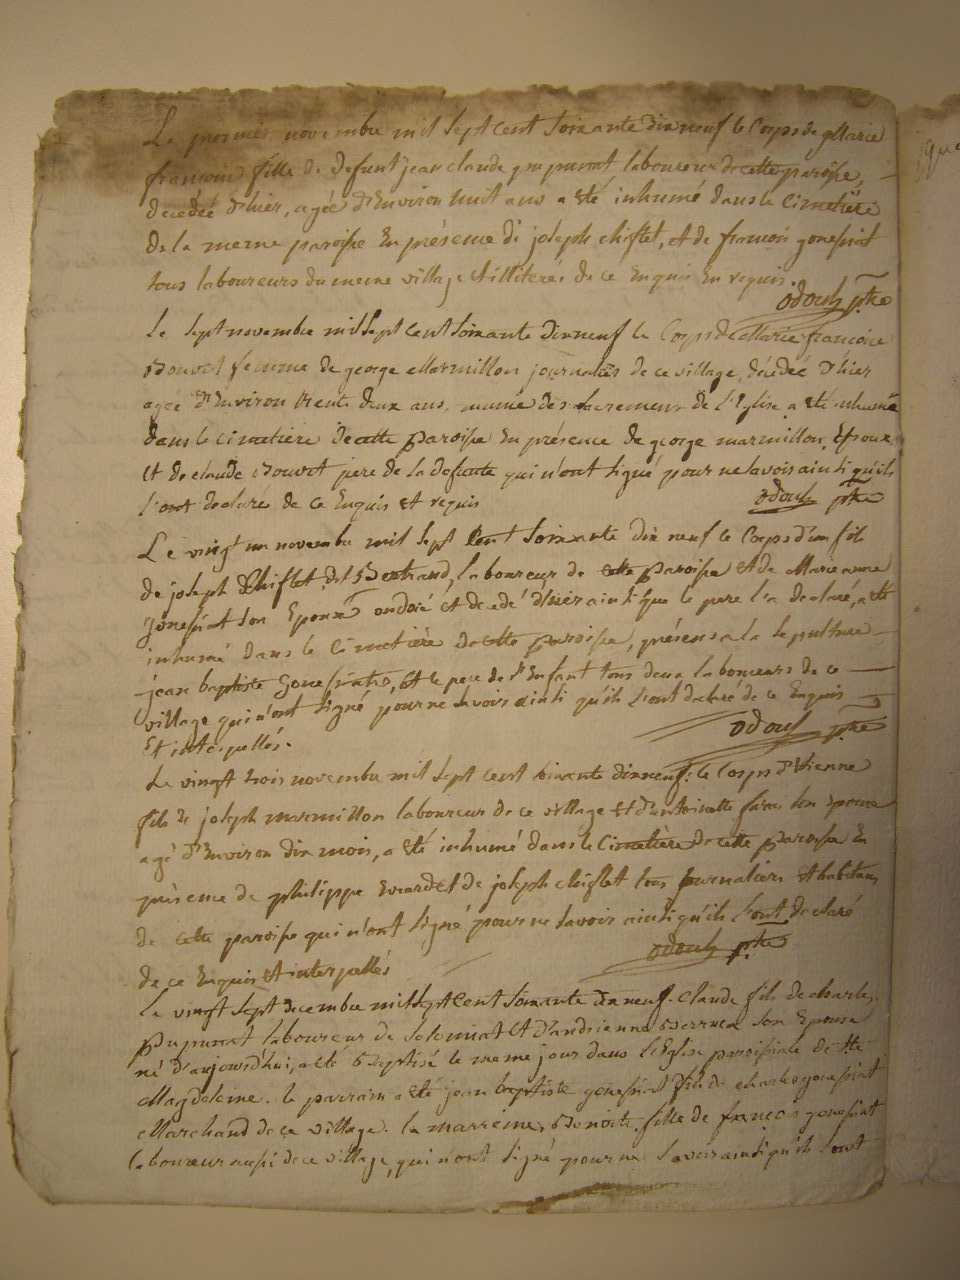 Le premier novembre mil sept cent soixante dix neuf le Corps de Marie
francoise fille de defunt jean claude pupunat laboureur de cette paroisse,
decedeé d'hier, ageé d'Environ huit ans a eté inhumé dans le Cimetiere
de la meme paroisse En présence de joseph chiflet, et de francois gonefsiat
tous laboureurs du meme village et illiterés de ce Enquis En requis.
odoul ptre
Le sept novembre mil sept cent soixante dixneuf le Corps de Marie francoise
Bouvet femme de george Marmillon journalier de ce village, décedeé d'hier
ageé d'Environ trente deux ans, munie des sacremens de l'Eglise a eté inhumé
dans le cimetiere de cette paroisse En présence de george marmillon Epoux
et de claude Bouvet pere de la defunte qui n'ont signé pour ne savoir ainsi qu'ils
l'ont declaré de ce Enquis et requis
odoul ptre
Le vingt un novembre mil sept Cent soixante dix neuf le Corps d'un fils
de joseph Chiflet dit Bertrand, laboureur de cette paroisse et de Marie anne
gonefsiat son Epouse ondoié et decedé d'hier ainsi que le pere l'a declaré, a eté
inhumé dans le cimetière de cette paroisse, présens a la sepulture
jean baptiste gonefsiat, et le pere de l'Enfant tous deux laboureurs de ce
village qui n'ont signé pour ne savoir ainsi qu'ils l'ont declaré de ce Enquis
Et interpellés.
odoul ptre
Le vingt trois novembre mil sept cent soixante dixneuf: le Corps d'Etienne
fils de joseph marmillon laboureur de ce village et d'antoinette son Epouse
agé d'Environ dix mois, a eté inhumé dans le Cimetière de cette paroisse En
présence de philippe et de joseph chiflet tous journaliers et habitans
de cette paroisse qui n'ont signé pour ne savoir ainsi qu'ils l'ont declaré
de ce Enquis et interpellés
odoul ptre
Le vingt sept decembre mil sept Cent soixante dix neuf. Claude fils de charles
pupunat laboureur de et d'andrienne son Epouse
né d'aujourd'hui, a eté Baptisé le meme jour dans l'Eglise paroissiale de Ste
Magdeleine. le parrain a eté jean baptiste gonefsiat fils de charles gonefsiat
Marchand de ce village. la marreine, Benoite fille de francois gonefsiat
laboureur aussi de ce village, qui n'ont signé pour ne savoir ainsi qu'ils l'ont